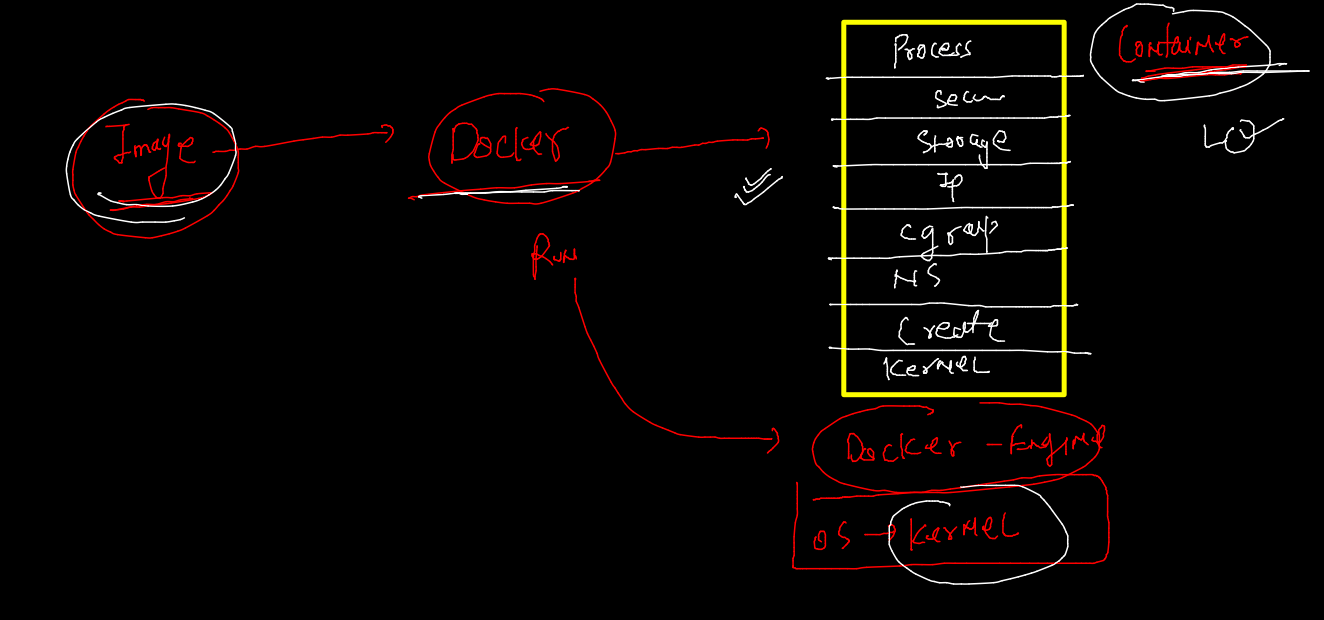 Image
Docker
Run
Process
Secu
Storage
IP
cgroup
NS
Create
Kernel
Container
Docker - Engine
OS → Kernel